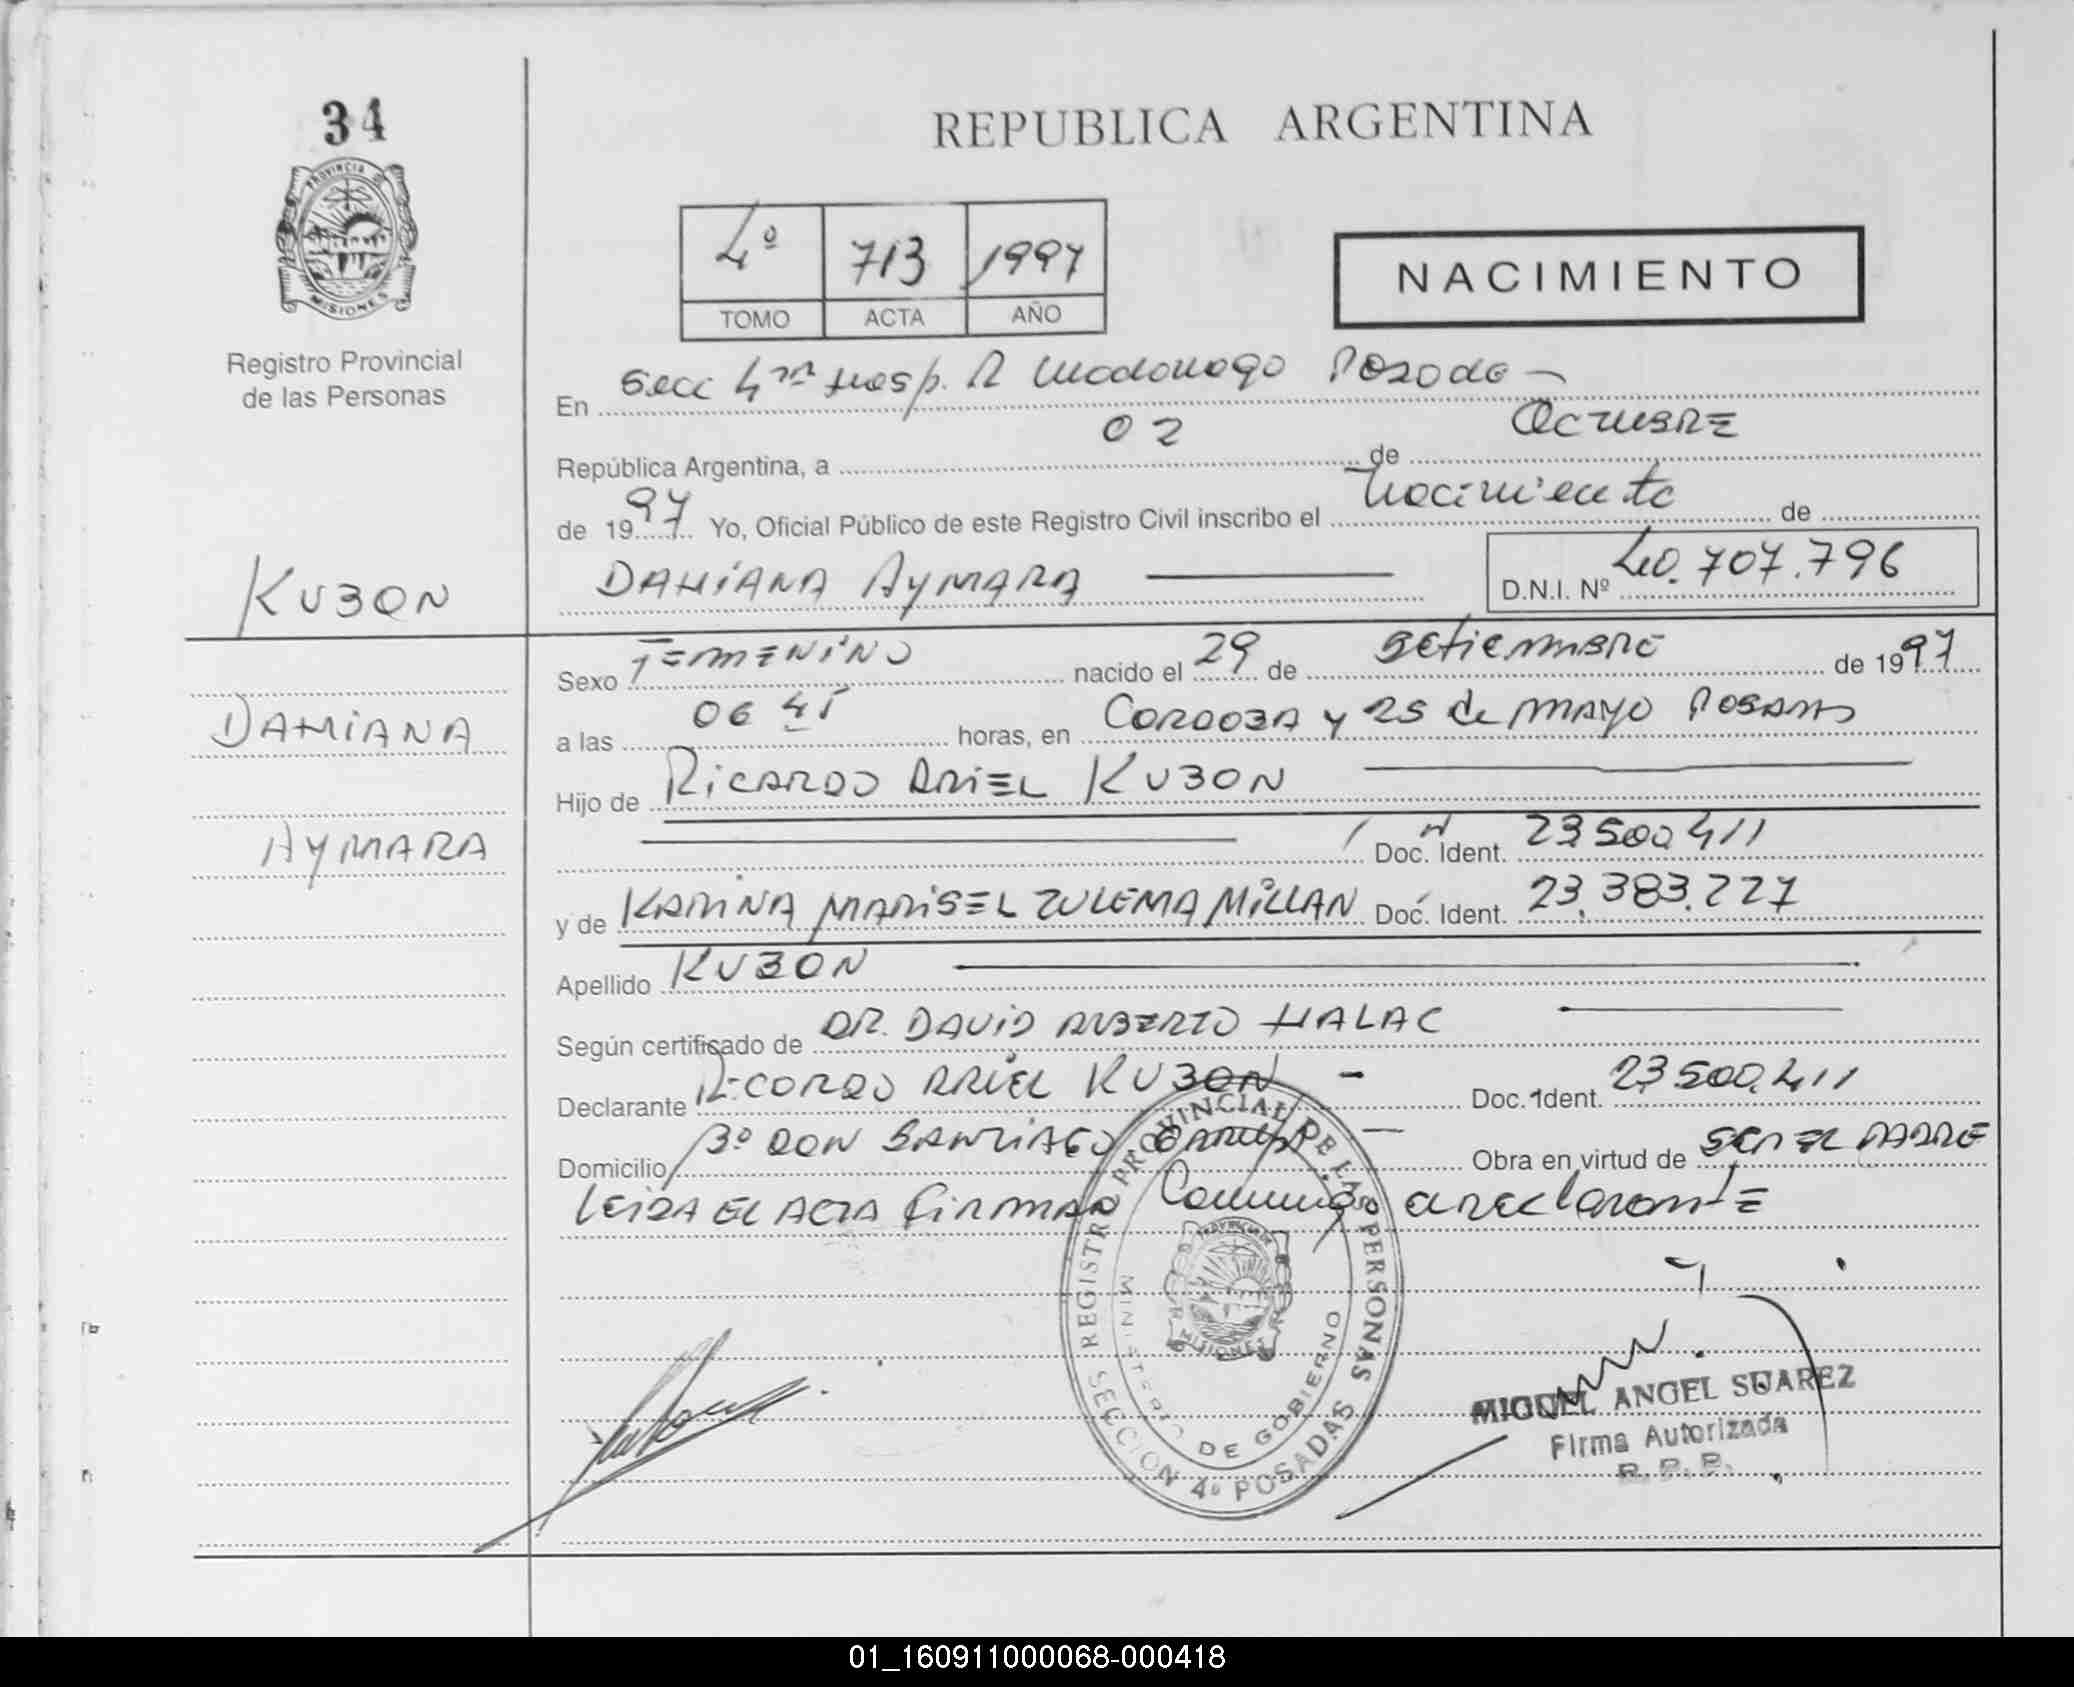 34
PROVINCIA DE
MISIONES
Registro Provincial
de las Personas
KUBON
DAMIANA
AYMARA
REPUBLICA ARGENTINA
4º 713 1997
TOMO ACTA AÑO
NACIMIENTO
En Secc 4ta Hosp. R Madonago Posadas
República Argentina, a 02 de Octubre
de 1997 Yo, Oficial Público de este Registro Civil inscribo el Nacimiento de
DAMIANA AYMARA D.N.I. Nº 40.707.796
Sexo FEMENINO nacido el 29 de Setiembre de 1997
a las 06 45 horas, en CORDOBA y 25 de MAYO POSADAS
Hijo de RICARDO ARIEL KUBON
Doc. Ident. 23.500.411
y de KARINA MARISEL ZULEMA MILLAN Doc. Ident. 23.383.227
Apellido KUBON
Según certificado de DR. DAVID ALBERTO HALAC
Declarante RICARDO ARIEL KUBON - Doc. Ident. 23.500.411
Domicilio Bº DON SANTIAGO Obra en virtud de SER EL PADRE
LEIDA EL ACTA FIRMAN Conmigo declarante
REGISTRO PROVINCIAL DE LAS PERSONAS
MINISTERIO DE GOBIERNO
PROVINCIA DE
MISIONES
SECCION 4º POSADAS
MIGUEL ANGEL SUAREZ
Firma Autorizada
R. P. P.
01_160911000068-000418